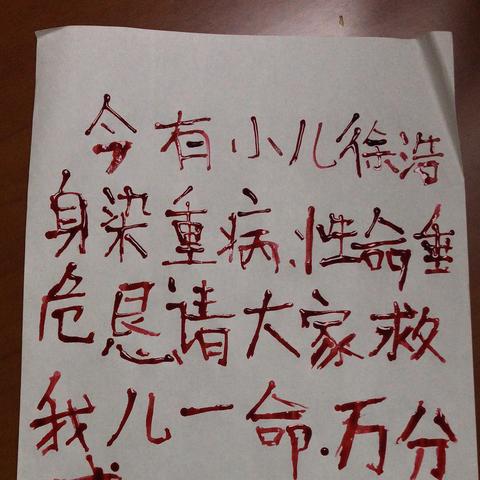 今有小儿徐浩
身染重病、性命垂
危恳请大家救
我儿一命.万分